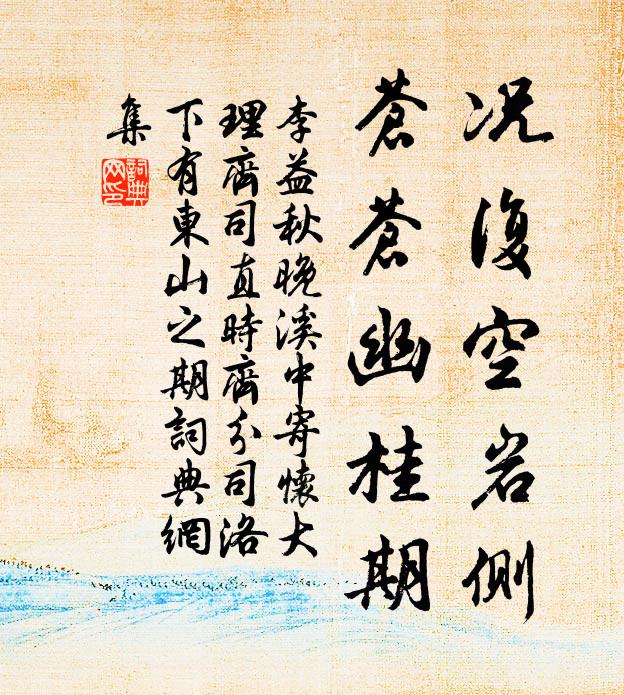 况復空岩侧
蒼蒼幽桂期
李益秋晚溪中寄懷大
理齊司直時齊分司洛
下有東山之期詞典網
集
詞典
网印